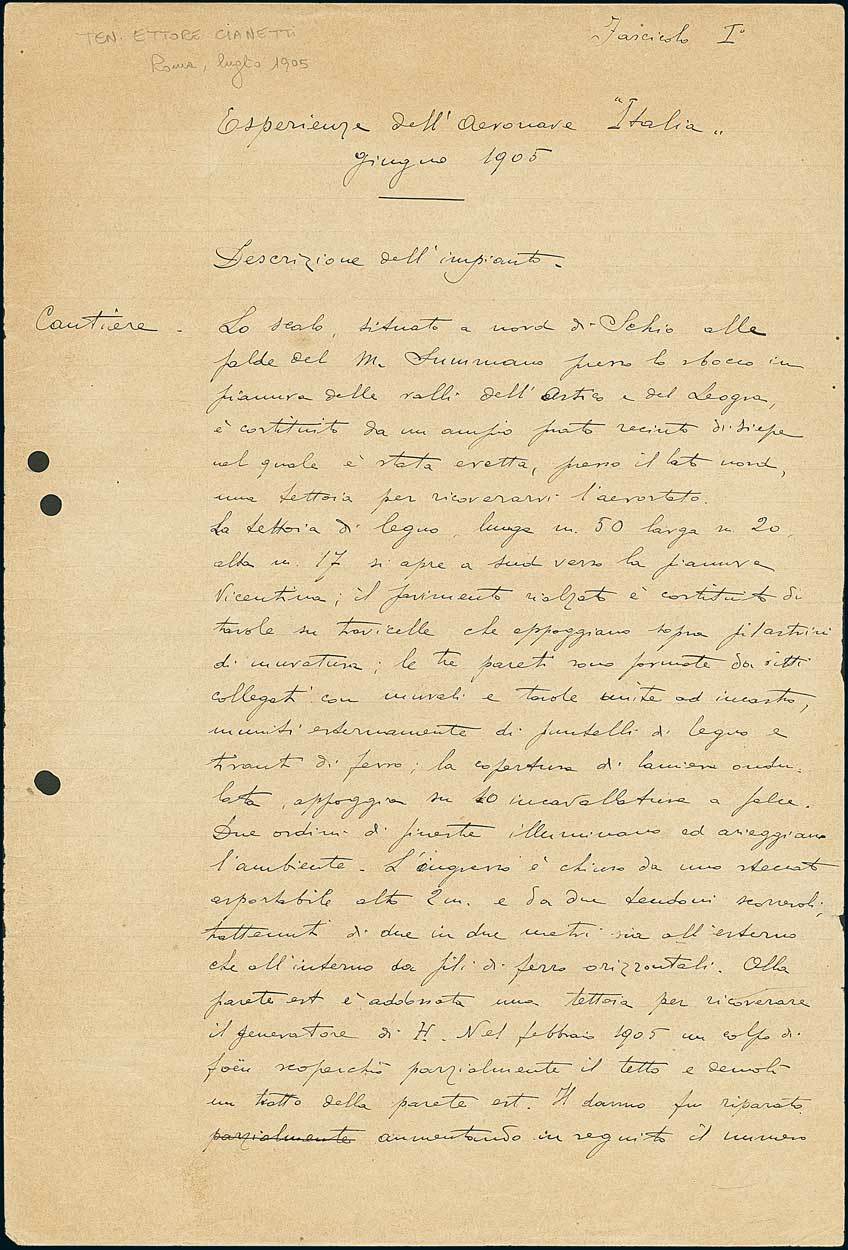 TEN. ETTORE CIANETTI
Roma, luglio 1905
Fascicolo I°
Esperienze dell'Aeronave "Italia„
giugno 1905
Descrizione dell'impianto.
Cantiere -
Lo scalo, situato a nord di Schio alle
falde del M. Summano presso lo sbocco in
pianura delle valli dell'Astico e del Leogra,
è costituito da un ampio prato recinto di siepe
nel quale è stata eretta, presso il lato nord,
una tettoia per ricoverarvi l'aerostato.
La tettoia di legno, lunga m. 50 larga m. 20,
alta m. 17 si apre a sud verso la pianura
Vicentina; il pavimento rialzato è costituito di
tavole su travicelle che appoggiano sopra pilastrini
di muratura; le tre pareti sono formate da ritti
collegati con murali e tavole unite ad incastro,
muniti esternamente di puntelli di legno e
tiranti di ferro; la copertura di lamiera ondu-
lata, appoggia su 10 incavallature a falce.
Due ordini di finestre illuminano ed arieggiano
l'ambiente. L'ingresso è chiuso da uno steccato
asportabile alto 2 m. e da due tendoni scorrevoli,
trattenuti di due in due metri sia all'esterno
che all'interno da fili di ferro orizzontali. Alla
parete est è addossata una tettoia per ricoverare
il generatore di H. Nel febbraio 1905 un colpo di
foën scoperchiò parzialmente il tetto e demolì
un tratto della parete est. Il danno fu riparato
parzialmente aumentando in seguito il numero